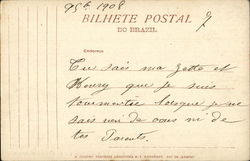 95th 1908
BILHETE POSTAL
DO BRAZIL
Endereço
Tu sais ma Zette et
Henry que je suis
tourmentée lorsque je ne
sais rien de vous ni de
tes Parents.